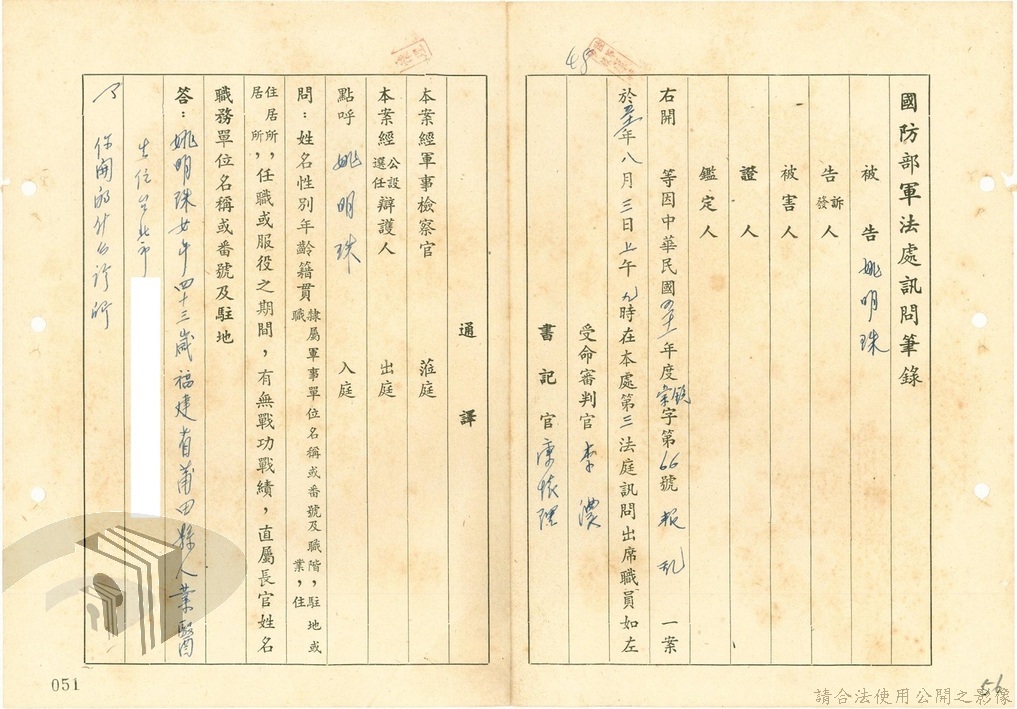 國防部軍法處訊問筆錄
被告 姚明珠
告訴發人
被害人
證人
鑑定人
右開 等因中華民國五十一年度 字第66號 叛乱 一案
於五一年八月三日上午九時在本處第三法庭訊問出席職員如左
受命審判官 李濃
書記官
通譯
本案經軍事檢察官 蒞庭
本案經公設選任辯護人 出庭
點呼 姚明珠 入庭
問：姓名性別年齡籍貫隸屬軍事單位名稱或番號及職階，駐地或職業，住
住居所，居所，任職或服役之期間，有無戰功戰績，直屬長官姓名
職務單位名稱或番號及駐地
答：姚明珠女年四十三歲福建省莆田縣人業醫
住台北市
你開的什么診所
48
56
051
請合法使用公開之影像